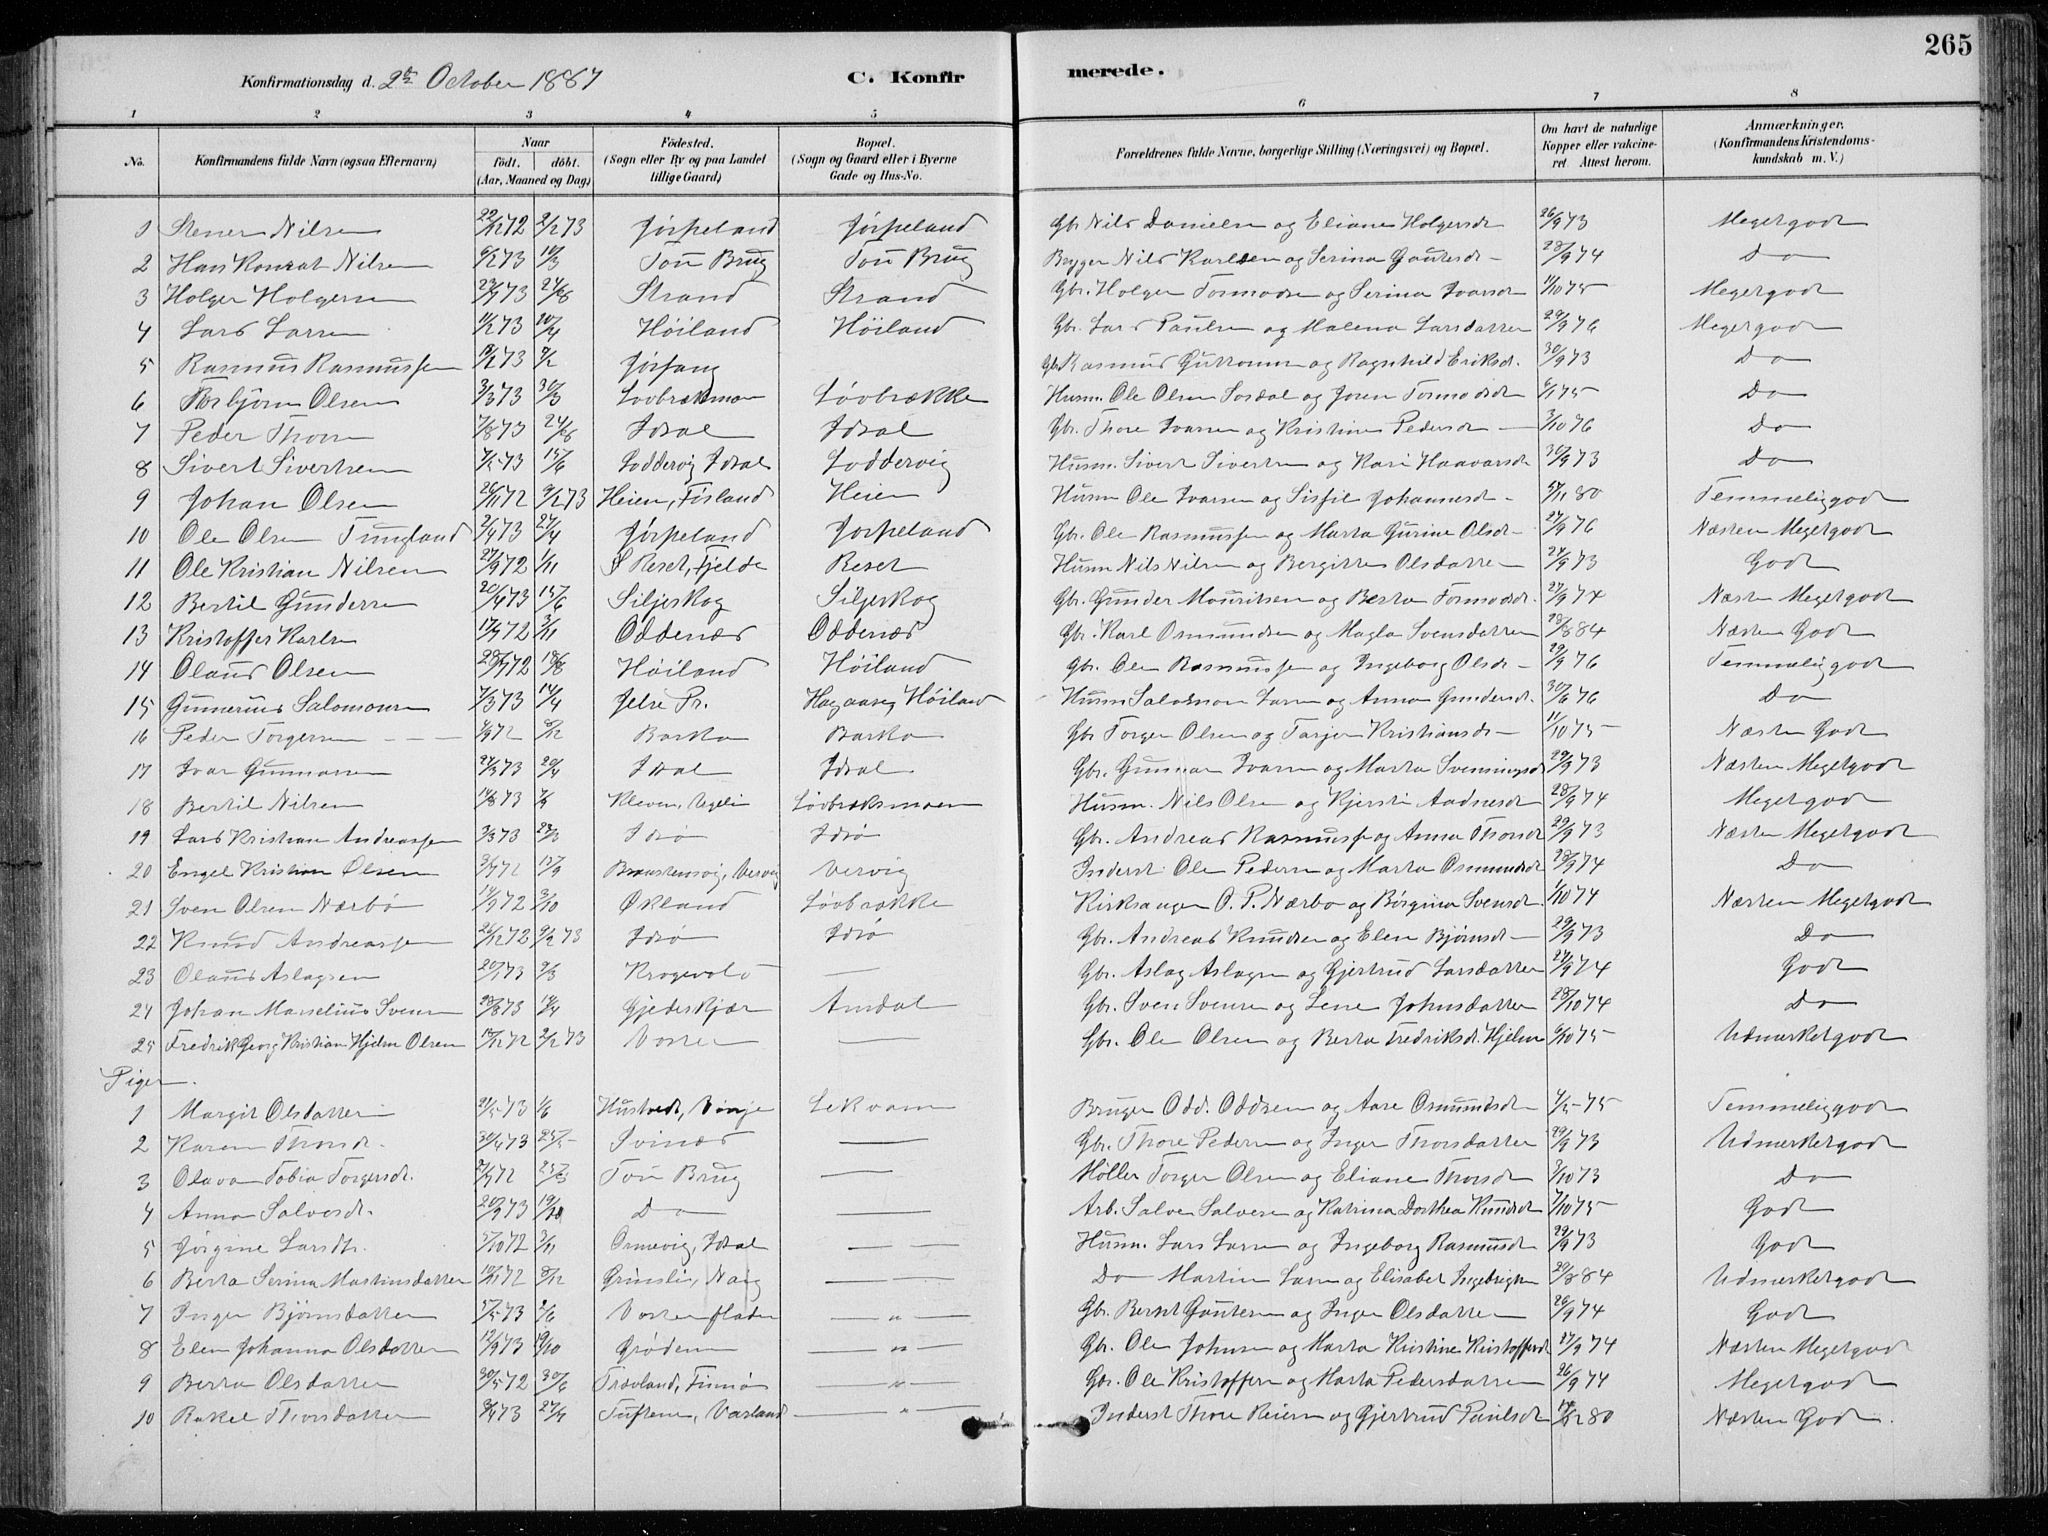 265
Konfirmationsdag d. 2den October 1887 C. Konfirmerede.
1 2 3 4 5 6 7 8
No. Konfirmandens fulde Navn (ogsaa Efternavn) Naar födt. döbt. (Aar, Maaned og Dag) Födested. (Sogn eller By og paa Landet tillige Gaard) Bopæl. (Sogn og Gaard eller i Byerne Gade og Hus-No. Forældrenes fulde Navne, borgerlige Stilling (Næringsvei) og Bopæl. Om havt de naturlige Kopper eller vakcineret Attest herom. Anmærkninger. (Konfirmandens Kristendomskundskab m. V.)
1 Stener Nilsen 22/12 72 2/2 73 Jörpeland Jörpeland Gbr. Nils Danielsen og Eliane Holgersdt 26/9 73 Megetgodt
2 Hans Konrat Nilsen 6/2 73 14/3 Tou Brug Tou Brug Brygger Nils Karlsen og Serina Gautesdt 28/9 74 Do
3 Holger Holgersen Strand Strand Gbr. Holger Tormodsen og Serina Ivarsdt 11/10 75 Megetgodt
4 Lars Larsen 11/2 73 20/4 Höiland Höiland Gbr. Lars Paulsen og Malena Larsdatter 29/9 76 Megetgodt
5 Rasmus Rasmussen Jörsang Gbr. Rasmus Guttormsen og Ragnhild Eriksdt. 30/9 73 Do
6 Torbjörn Olsen 3/3 73 30/3 Lovbrækmoen Lövbrække Husm. Ole Olsen Sordal og Joren Tormodsdt 6/1 75 Do
7 Peder Thorsen Idsal Idsal Gbr. Thore Ivarsen og Kristine Pedersdt 3/10 76 Do
8 Sivert Sivertsen 7/5 73 15/6 Loddervig Idsal Loddervig Husm. Sivert Sivertsen og Kari Haavarsdt 30/9 73 Do
9 Johan Olsen 26/11 72 9/2 73 Heien, Fisland Heien Husm Ole Ivarsen og Sisfie Johannesdt 80 Temmelig godt
10 Ole Olsen Tungland 2/4 73 27/4 Jörpeland Jorpeland Gbr. Ole Rasmussen og Marta Gurine Olsdt 27/9 76 Næsten Megetgodt
11 Ole Kristian Nilsen 27/9 72 1/11 Reset, Fjelde Reset Husm Nils Nilsen og Bergitte Olsdatter 24/9 73 Godt
12 Bertil Gundersen 20/4 73 15/6 Siljeskog Siljeskog Gbr. Gunder Mouritsen og Berta Tormodsdt. 27/9 74 Næsten Megetgodt
13 Kristoffer Karlsen 17/9 72 3/11 Oddenæs Oddenæs Gbr. Karl Osmundsen og Magla Svensdatter 29/8 84 Næsten Godt
14 Olaus Olsen 28/7 72 18/8 Höiland Höiland Gbr. Ole Rasmussen og Ingeborg Olsdt 29/9 76 Temmeliggodt
15 Gunnerius Salomonsen 7/3 73 14/4 Jelse Pr. Hagaasen, Höiland Husm Salomon Larsen og Anna Gundersdt. 30/6 76 Do
16 Peder Torgersen Barka Barka Gbr Torger Olsen og Tarjer Kristiansdt 11/10 75 Næsten Godt
17 Ivar Gunnarsen 27/3 73 20/4 Idsal Idsal Gbr. Gunnar Ivarsen og Marta Svenningsdt 29/9 73 Næsten Megetgodt
18 Bertil Nilsen Kleven, Lövbræksmoen Husm. Nils Olsen og Kjersti Aadnesdt 28/9 74 Megetgodt
19 Lars Kristian Andreassen 3/3 73 23/3 Idsö Idsö Gbr. Andreas Rasmussen og Anna Thorsdt 29/9 73 Næsten Megetgodt
20 Engel Kristian Olsen Vervig Vervig Inderst Ole Pedersen og Marta Osmundsdt 28/9 74 Do
21 Sven Olsen Nærbö 14/9 72 3/10 Økland Lövbrække Kirksanger O. P. Nærbö og Börgina Svensdt. 1/10 74 Næsten Megetgodt
22 Knud Andreassen 26/12 72 9/2 73 Idsö Idsö Gbr. Andreas Knudsen og Elen Björnsdt 29/9 73 Do
23 Olaus Aslagsen 20/1 73 9/3 Krogevold — Gbr. Aslag Aslagsen og Gjertrud Larsdatter 27/9 74 Godt
24 Johan Marselius Svensen Gjedeskjær Amdal Gbr. Sven Svensen og Lene Johnsdatter 28/10 74 Do
25 Fredrik Georg Kristian Hjelm Olsen 15/12 72 2/2 73 Voster — Gbr. Ole Olsen og Berta Fredriksdt. Hjelm 6/10 75 Udmerketgodt
Piger.
1 Margit Olsdatter 21/5 73 1/6 Hustvedt, Vinje Lekvam Bruger Odd. Oddsen og Aase Osmundsdt 4/5 75 Temmeliggodt
2 Karen Thorsdt. 30/4 73 25/5 Svinæs — Gbr. Thore Pedersen og Inger Thorsdatter 29/9 73 Udmerketgodt
3 Olava Tobia Torgersdt. Tou Brug — Möller Torger Olsen og Eliane Thorsdt 3/10 73 Do
4 Anna Salvesdt. 20/9 73 19/10 Do — Arb. Salve Salvesen og Katrina Dorthea Knudsdt 7/10 75 Godt
5 Jörgine Larsdtr. 5/10 72 3/11 Osmevig, Idsal — Husm. Lars Larsen og Ingeborg Rasmusdt 29/9 73 Godt
6 Berta Serina Martinsdatter 10/11 72 8/12 Grimsli, Naig — Do Martin Larsen og Elisabet Ingebrigtsen 20/8 84 Udmerketgodt
7 Inger Björnsdatter Vosterflaten — " — Gbr. Bernt Gautesen og Inger Olsdatter 26/9 74 Godt
8 Elen Johanna Olsdatter 12/9 73 19/10 Grödem — " — Gbr. Ole Johnsen og Marta Kristine Kristoffersdt 27/9 74 Næsten Megetgodt
9 Berta Olsdatter 30/5 72 30/6 Trovland, Finnö — " — Gbr. Ole Kristoffersen og Marta Pedersdatter 26/9 74 Megetgodt
10 Rakel Thorsdatter 27/4 Tuftene, Varland — " — Inderst Thore Reiersen og Gjertrud Paulsdt 80 Næsten Godt.